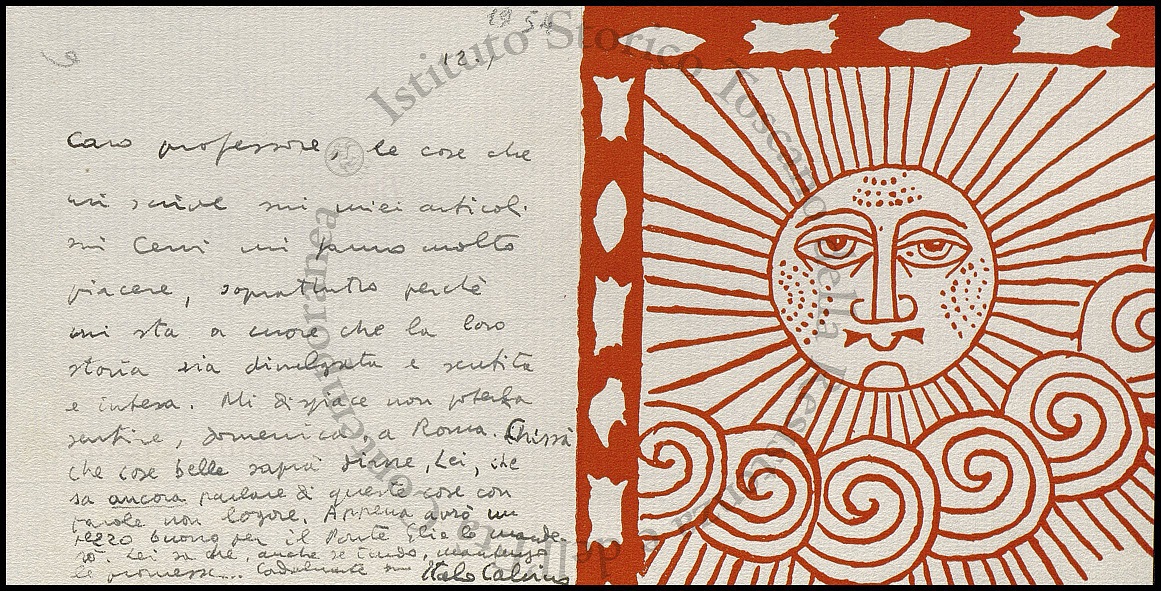 1954
12.
Caro professore, le cose che
mi scrive sui miei articoli
sui Cervi mi fanno molto
piacere, soprattutto perchè
mi sta a cuore che la loro
storia sia divulgata e sentita
e intesa. Mi dispiace non poterla
sentire, domenica, a Roma. Chissà
che cose belle saprà dirne, Lei, che
sa ancora parlare di queste cose con
parole non logore. Appena avrò un
pezzo buono per il Ponte Glie lo mande-
rò. Lei sa che, anche se tardo, mantengo
le promesse... Cordialmente suo Italo Calvino
Istituto Storico Toscano della Resistenza e dell'Età Contemporanea ©